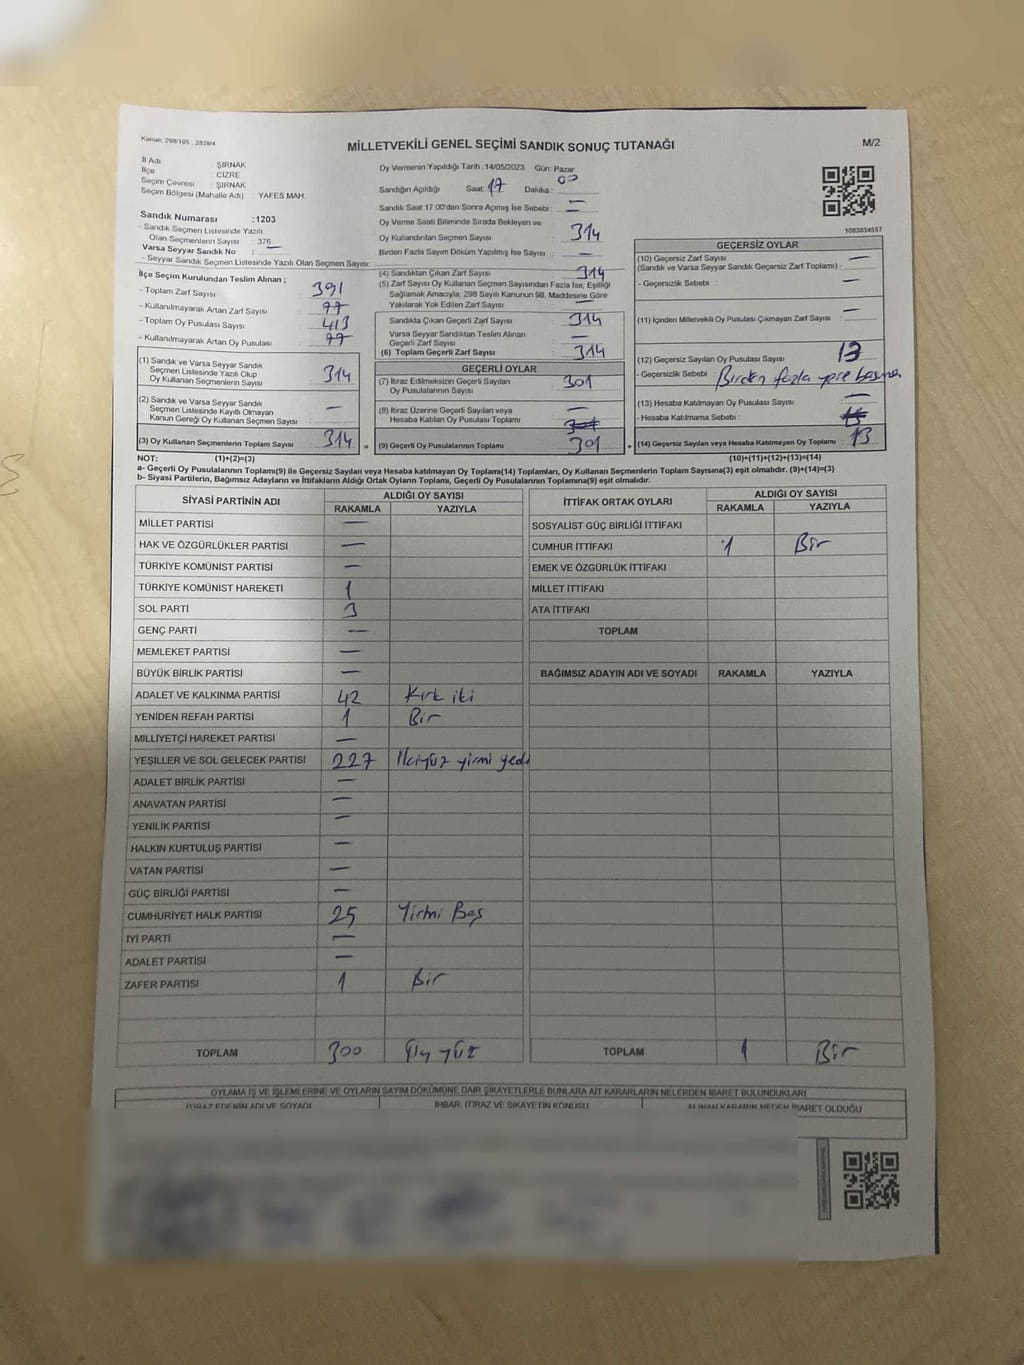 Kanun: 298/105 , 2839/4
MİLLETVEKİLİ GENEL SEÇİMİ SANDIK SONUÇ TUTANAĞI
M/2
İl Adı : ŞIRNAK
İlçe : CİZRE
Seçim Çevresi : ŞIRNAK
Seçim Bölgesi (Mahalle Adı) : YAFES MAH.
Sandık Numarası :1203
- Sandık Seçmen Listesinde Yazılı
Olan Seçmenlerin Sayısı 376
Varsa Seyyar Sandık No : —
- Seyyar Sandık Seçmen Listesinde Yazılı Olan Seçmen Sayısı:
Oy Vermenin Yapıldığı Tarih :14/05/2023 Gün: Pazar
Sandığın Açıldığı Saat: 17 Dakika : 00
Sandık Saat 17:00'den Sonra Açımış İse Sebebi : —
Oy Verme Saati Bitiminde Sırada Bekleyen ve
Oy Kullandırılan Seçmen Sayısı 314
Birden Fazla Sayım Döküm Yapılmış İse Sayısı : —
1083834557
İlçe Seçim Kurulundan Teslim Alınan ;
- Toplam Zarf Sayısı 391
- Kullanılmayarak Artan Zarf Sayısı 77
- Toplam Oy Pusulası Sayısı 413
- Kullanılmayarak Artan Oy Pusulası 77
(1) Sandık ve Varsa Seyyar Sandık
Seçmen Listesinde Yazılı Olup
Oy Kullanan Seçmenlerin Sayısı 314
(2) Sandık ve Varsa Seyyar Sandık
Seçmen Listesinde Kayıtlı Olmayan
Kanun Gereği Oy Kullanan Seçmen Sayısı —
(3) Oy Kullanan Seçmenlerin Toplam Sayısı 314 =
(4) Sandıktan Çıkan Zarf Sayısı 314
(5) Zarf Sayısı Oy Kullanan Seçmen Sayısından Fazla İse, Eşitliği
Sağlamak Amacıyla; 298 Sayılı Kanunun 98. Maddesine Göre
Yakılarak Yok Edilen Zarf Sayısı —
Sandıkta Çıkan Geçerli Zarf Sayısı : 314
Varsa Seyyar Sandıktan Teslim Alınan
Geçerli Zarf Sayısı : —
(6) Toplam Geçerli Zarf Sayısı 314
GEÇERLİ OYLAR
(7) İtiraz Edilmeksizin Geçerli Sayılan
Oy Pusulalarının Sayısı 301
(8) İtiraz Üzerine Geçerli Sayılan veya
Hesaba Katılan Oy Pusulası Toplamı —
(9) Geçerli Oy Pusulalarının Toplamı 301 +
GEÇERSİZ OYLAR
(10) Geçersiz Zarf Sayısı —
(Sandık ve Varsa Seyyar Sandık Geçersiz Zarf Toplamı) :
- Geçersizlik Sebebi : —
(11) İçinden Milletvekili Oy Pusulası Çıkmayan Zarf Sayısı : —
(12) Geçersiz Sayılan Oy Pusulası Sayısı 13
- Geçersizlik Sebebi Birden fazla yere basma
(13) Hesaba Katılmayan Oy Pusulası Sayısı —
- Hesaba Katılmama Sebebi :
(14) Geçersiz Sayılan veya Hesaba Katılmayan Oy Toplamı : 13
NOT: (1)+(2)=(3) (10)+(11)+(12)+(13)=(14)
a- Geçerli Oy Pusulalarının Toplamı(9) ile Geçersiz Sayılan veya Hesaba katılmayan Oy Toplamı(14) Toplamları, Oy Kullanan Seçmenlerin Toplam Sayısına(3) eşit olmalıdır. (9)+(14)=(3)
b- Siyasi Partilerin, Bağımsız Adayların ve İttifakların Aldığı Ortak Oyların Toplamı, Geçerli Oy Pusulalarının Toplamına(9) eşit olmalıdır.
SİYASİ PARTİNİN ADI ALDIĞI OY SAYISI
RAKAMLA YAZIYLA
MİLLET PARTİSİ —
HAK VE ÖZGÜRLÜKLER PARTİSİ —
TÜRKİYE KOMÜNİST PARTİSİ —
TÜRKİYE KOMÜNİST HAREKETİ 1
SOL PARTİ 3
GENÇ PARTİ —
MEMLEKET PARTİSİ —
BÜYÜK BİRLİK PARTİSİ —
ADALET VE KALKINMA PARTİSİ 42 Kırk iki
YENİDEN REFAH PARTİSİ 1 Bir
MİLLİYETÇİ HAREKET PARTİSİ —
YEŞİLLER VE SOL GELECEK PARTİSİ 227 İkiyüz yirmi yedi
ADALET BİRLİK PARTİSİ —
ANAVATAN PARTİSİ —
YENİLİK PARTİSİ —
HALKIN KURTULUŞ PARTİSİ —
VATAN PARTİSİ —
GÜÇ BİRLİĞİ PARTİSİ —
CUMHURİYET HALK PARTİSİ 25 Yirmi Beş
İYİ PARTİ —
ADALET PARTİSİ —
ZAFER PARTİSİ 1 Bir
TOPLAM 300 Üç yüz
İTTİFAK ORTAK OYLARI ALDIĞI OY SAYISI
RAKAMLA YAZIYLA
SOSYALİST GÜÇ BİRLİĞİ İTTİFAKI
CUMHUR İTTİFAKI 1 Bir
EMEK VE ÖZGÜRLÜK İTTİFAKI
MİLLET İTTİFAKI
ATA İTTİFAKI
TOPLAM
BAĞIMSIZ ADAYIN ADI VE SOYADI RAKAMLA YAZIYLA
TOPLAM 1 Bir
OYLAMA İŞ VE İŞLEMLERİNE VE OYLARIN SAYIM DÖKÜMÜNE DAİR ŞİKAYETLERLE BUNLARA AİT KARARLARIN NELERDEN İBARET BULUNDUKLARI
İTİRAZ EDENİN ADI VE SOYADI İHBAR, İTİRAZ VE ŞİKAYETİN KONUSU ALINAN KARARIN NEDEN İBARET OLDUĞU